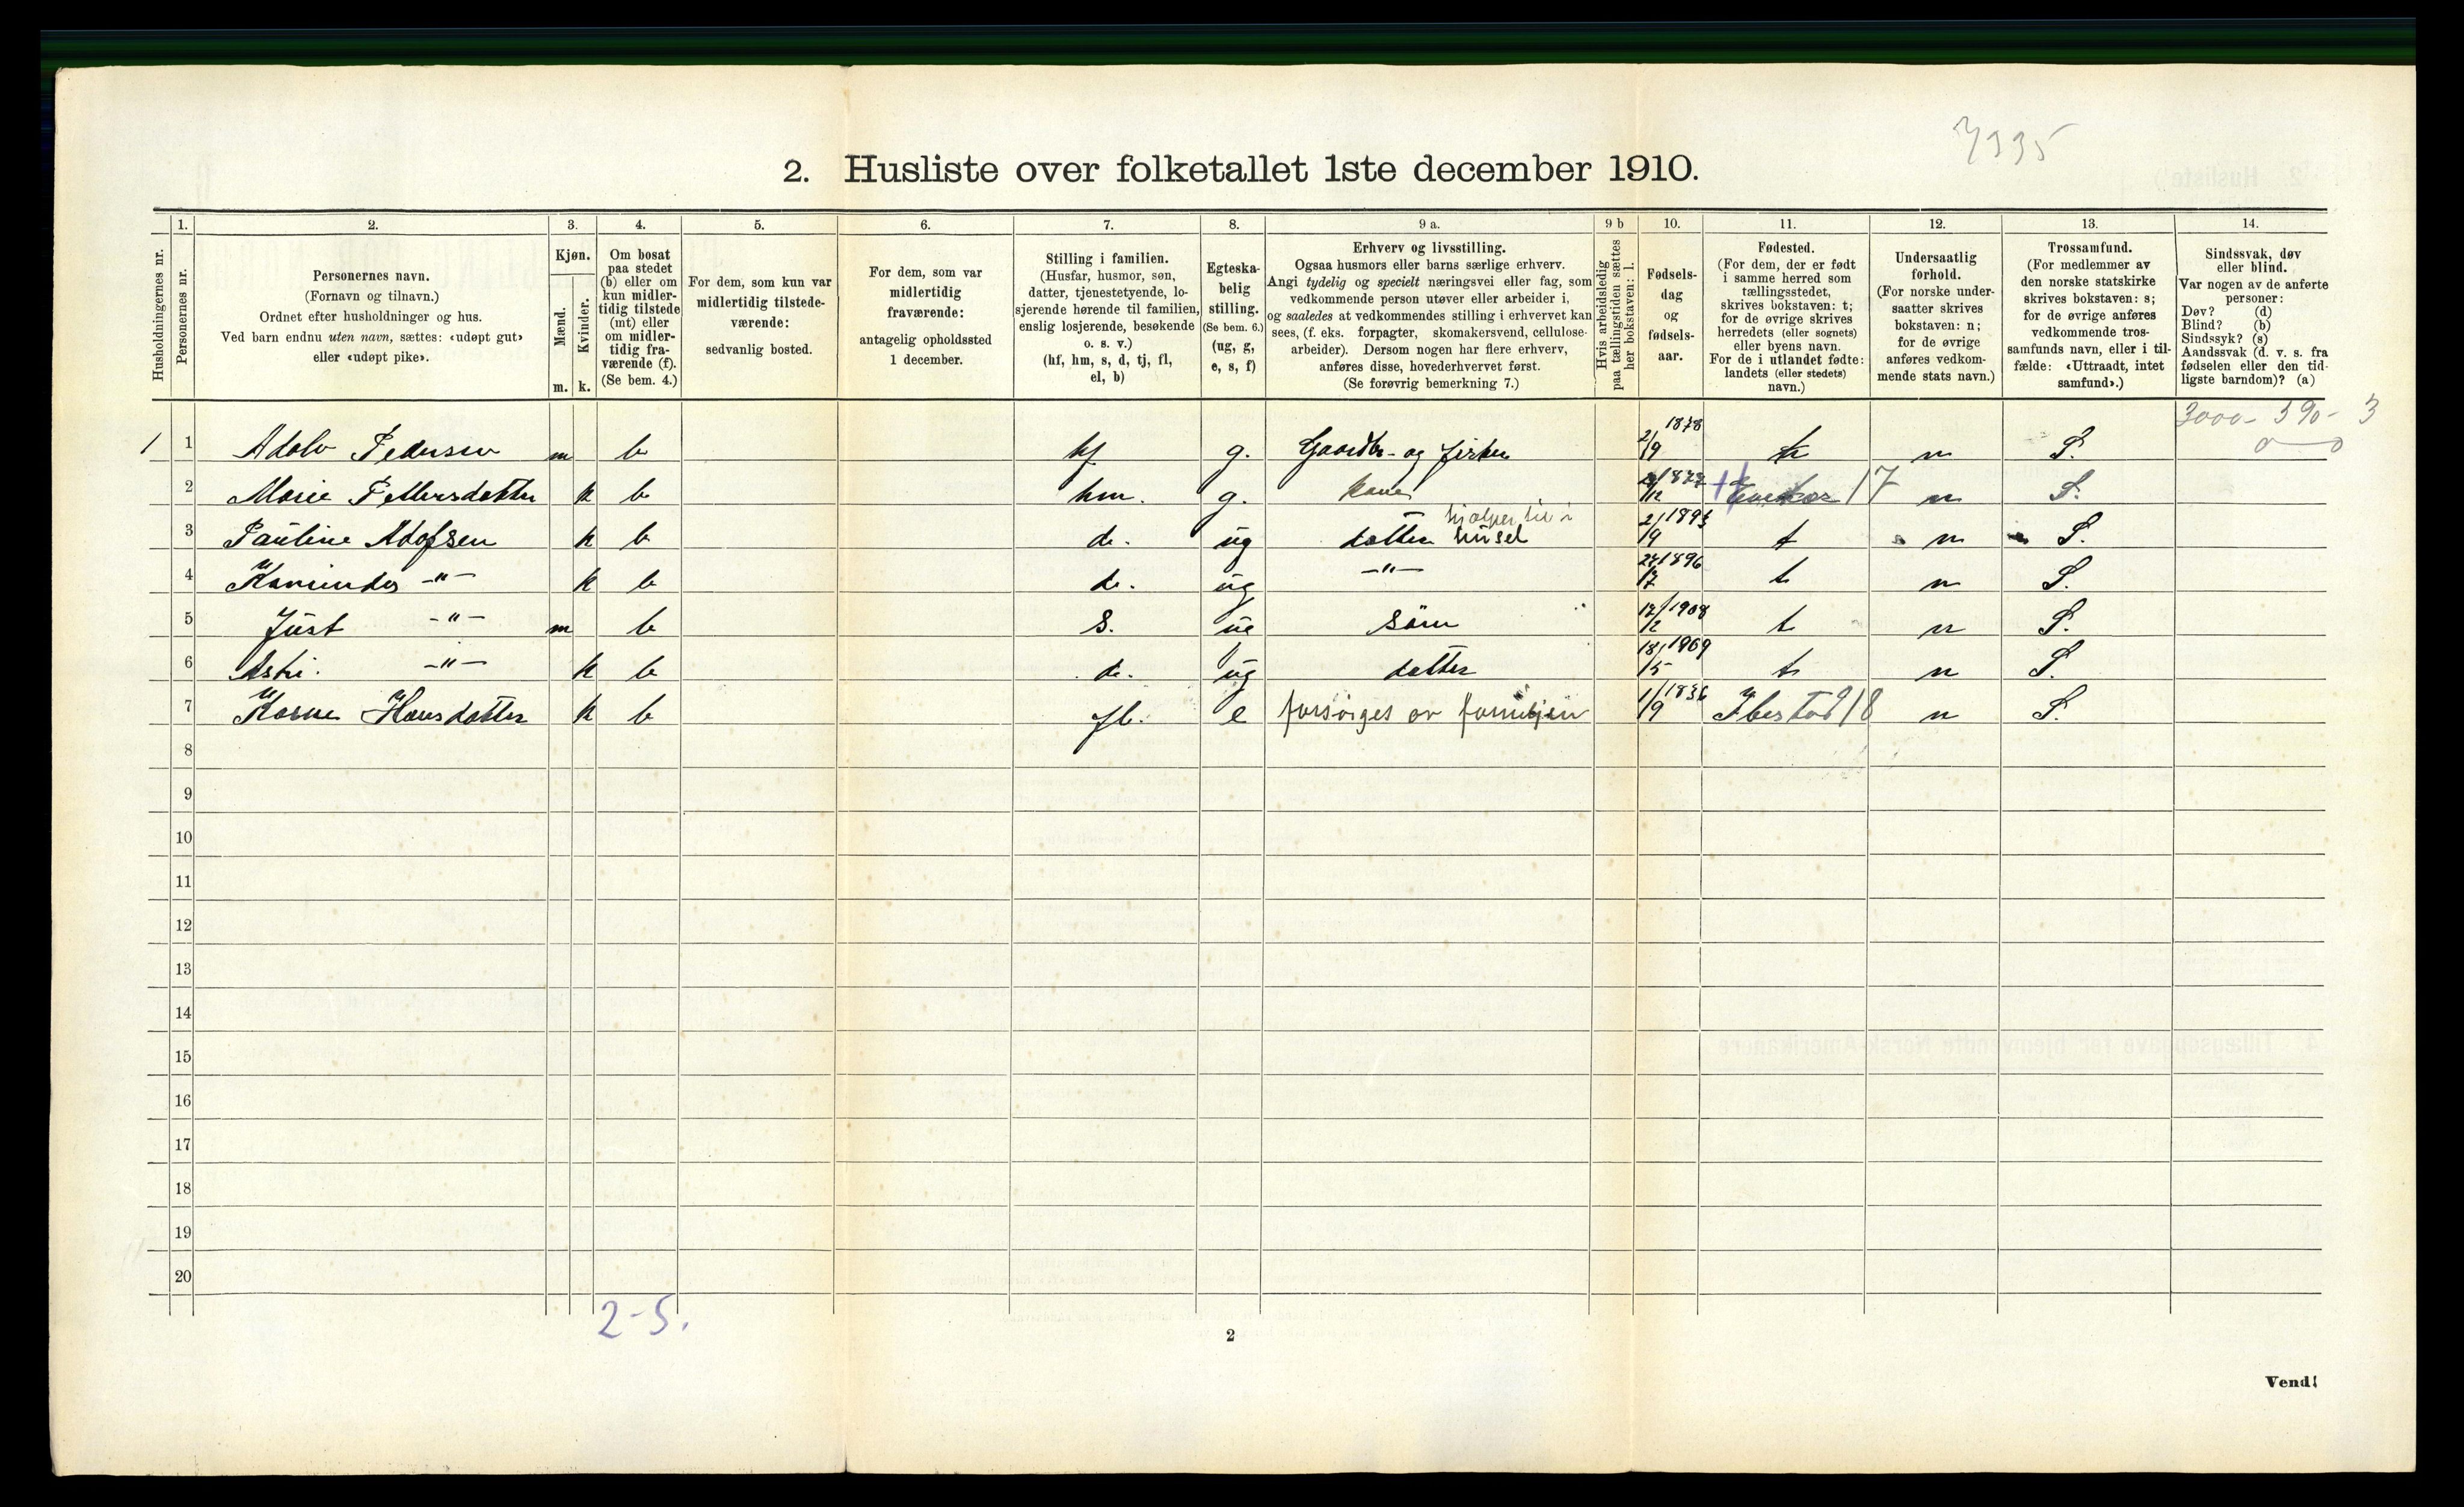 7335
2. Husliste over folketallet 1ste december 1910.
Husholdningernes nr.
1.
Personernes nr.
2.
Personernes navn.
(Fornavn og tilnavn.)
Ordnet efter husholdninger og hus.
Ved barn endnu uten navn, sættes: «udøpt gut»
eller «udøpt pike».
3.
Kjøn.
Mænd.
Kvinder.
m. k.
4.
Om bosat
paa stedet
(b) eller om
kun midler-
tidig tilstede
(mt) eller
om midler-
tidig fra-
værende (f).
(Se bem. 4.)
5.
For dem, som kun var
midlertidig tilstede-
værende:
sedvanlig bosted.
6.
For dem, som var
midlertidig
fraværende:
antagelig opholdssted
1 december.
7.
Stilling i familien.
(Husfar, husmor, søn,
datter, tjenestetyende, lo-
sjerende hørende til familien,
enslig losjerende, besøkende
o. s. v.)
(hf, hm, s, d, tj, fl,
el, b)
8.
Egteska-
belig
stilling.
(Se bem. 6.)
(ug, g,
e, s, f)
9 a.
Erhverv og livsstilling.
Ogsaa husmors eller barns særlige erhverv.
Angi tydelig og specielt næringsvei eller fag, som
vedkommende person utøver eller arbeider i,
og saaledes at vedkommendes stilling i erhvervet kan
sees, (f. eks. forpagter, skomakersvend, cellulose-
arbeider). Dersom nogen har flere erhverv,
anføres disse, hovederhvervet først.
(Se forøvrig bemerkning 7.)
9 b
Hvis arbeidsledig
paa tællingstiden sættes
her bokstaven: l.
10.
Fødsels-
dag
og
fødsels-
aar.
11.
Fødested.
(For dem, der er født
i samme herred som
tællingsstedet,
skrives bokstaven: t;
for de øvrige skrives
herredets (eller sognets)
eller byens navn.
For de i utlandet fødte:
landets (eller stedets)
navn.)
12.
Undersaatlig
forhold.
(For norske under-
saatter skrives
bokstaven: n;
for de øvrige
anføres vedkom-
mende stats navn.)
13.
Trossamfund.
(For medlemmer av
den norske statskirke
skrives bokstaven: s;
for de øvrige anføres
vedkommende tros-
samfunds navn, eller i til-
fælde: «Uttraadt, intet
samfund».)
14.
Sindssvak, døv
eller blind.
Var nogen av de anførte
personer:
Døv? (d)
Blind? (b)
Sindssyk? (s)
Aandssvak (d. v. s. fra
fødselen eller den tid-
ligste barndom)? (a)
3000- 590- 3
0 — 0
1 1 Adolv Pedersen m b hf g. Gaardbr- og fisker 2/9 1878 t n S.
2 Marie Pettersdatter k b hm. g. kone /12 17 n S.
3 Pauline Adolfsen k b d. ug datter hjælper til i huset 2/9 1893 t n S.
4 -"- k b d. ug -"- 1896 t n S.
5 Just -"- m b s. ug sön 12/2 1908 t n S.
6 Astri. -"- k b d. ug datter 18/5 1909 t n S.
7 Karne Hansdatter k b fl. e forsörges av familjen 1/9 1836 Ibestad 18 n S.
8
9
10
11
12
13
14
15
16
17
18
19
20
2-5.
2
Vend!